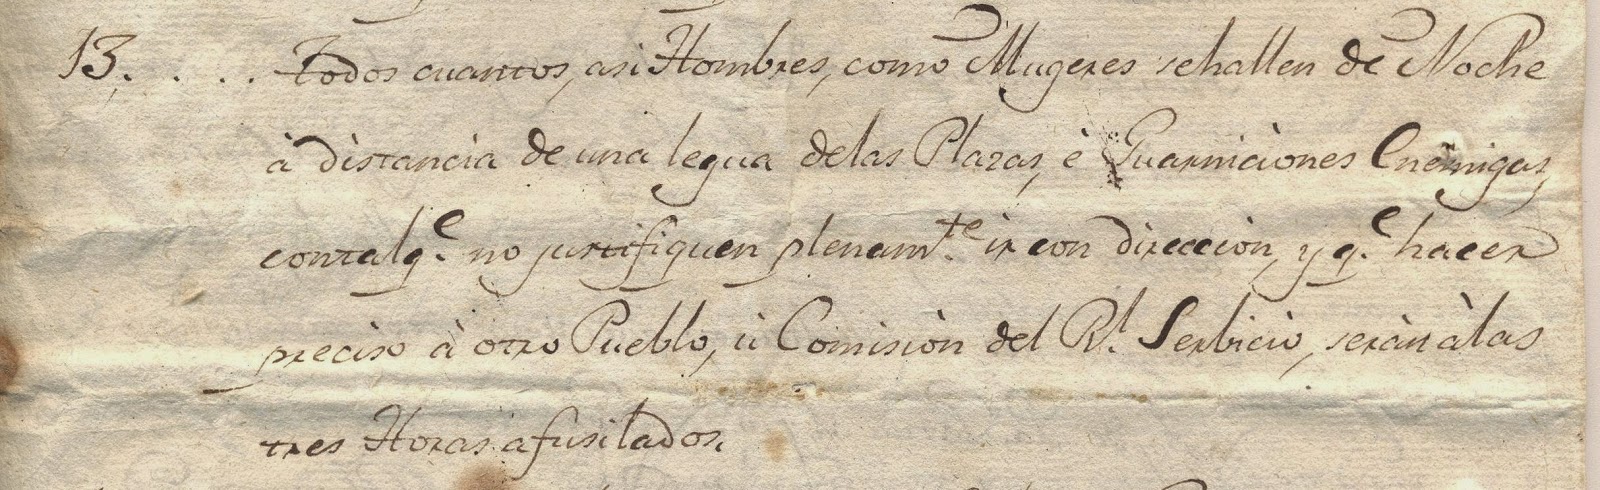 13. . . . Todos cuantos, asi Hombres, como Mugeres sehallen de Noche
à distancia de una legua delas Plazas, è Guarniciones Enemigas,
contalqe. no justifiquen plenamte. ir con direccion, y qe. hacer
preciso à otro Pueblo, ù Comisiòn del Rl. Serbicio, seràn à las
tres Horas afusilados.